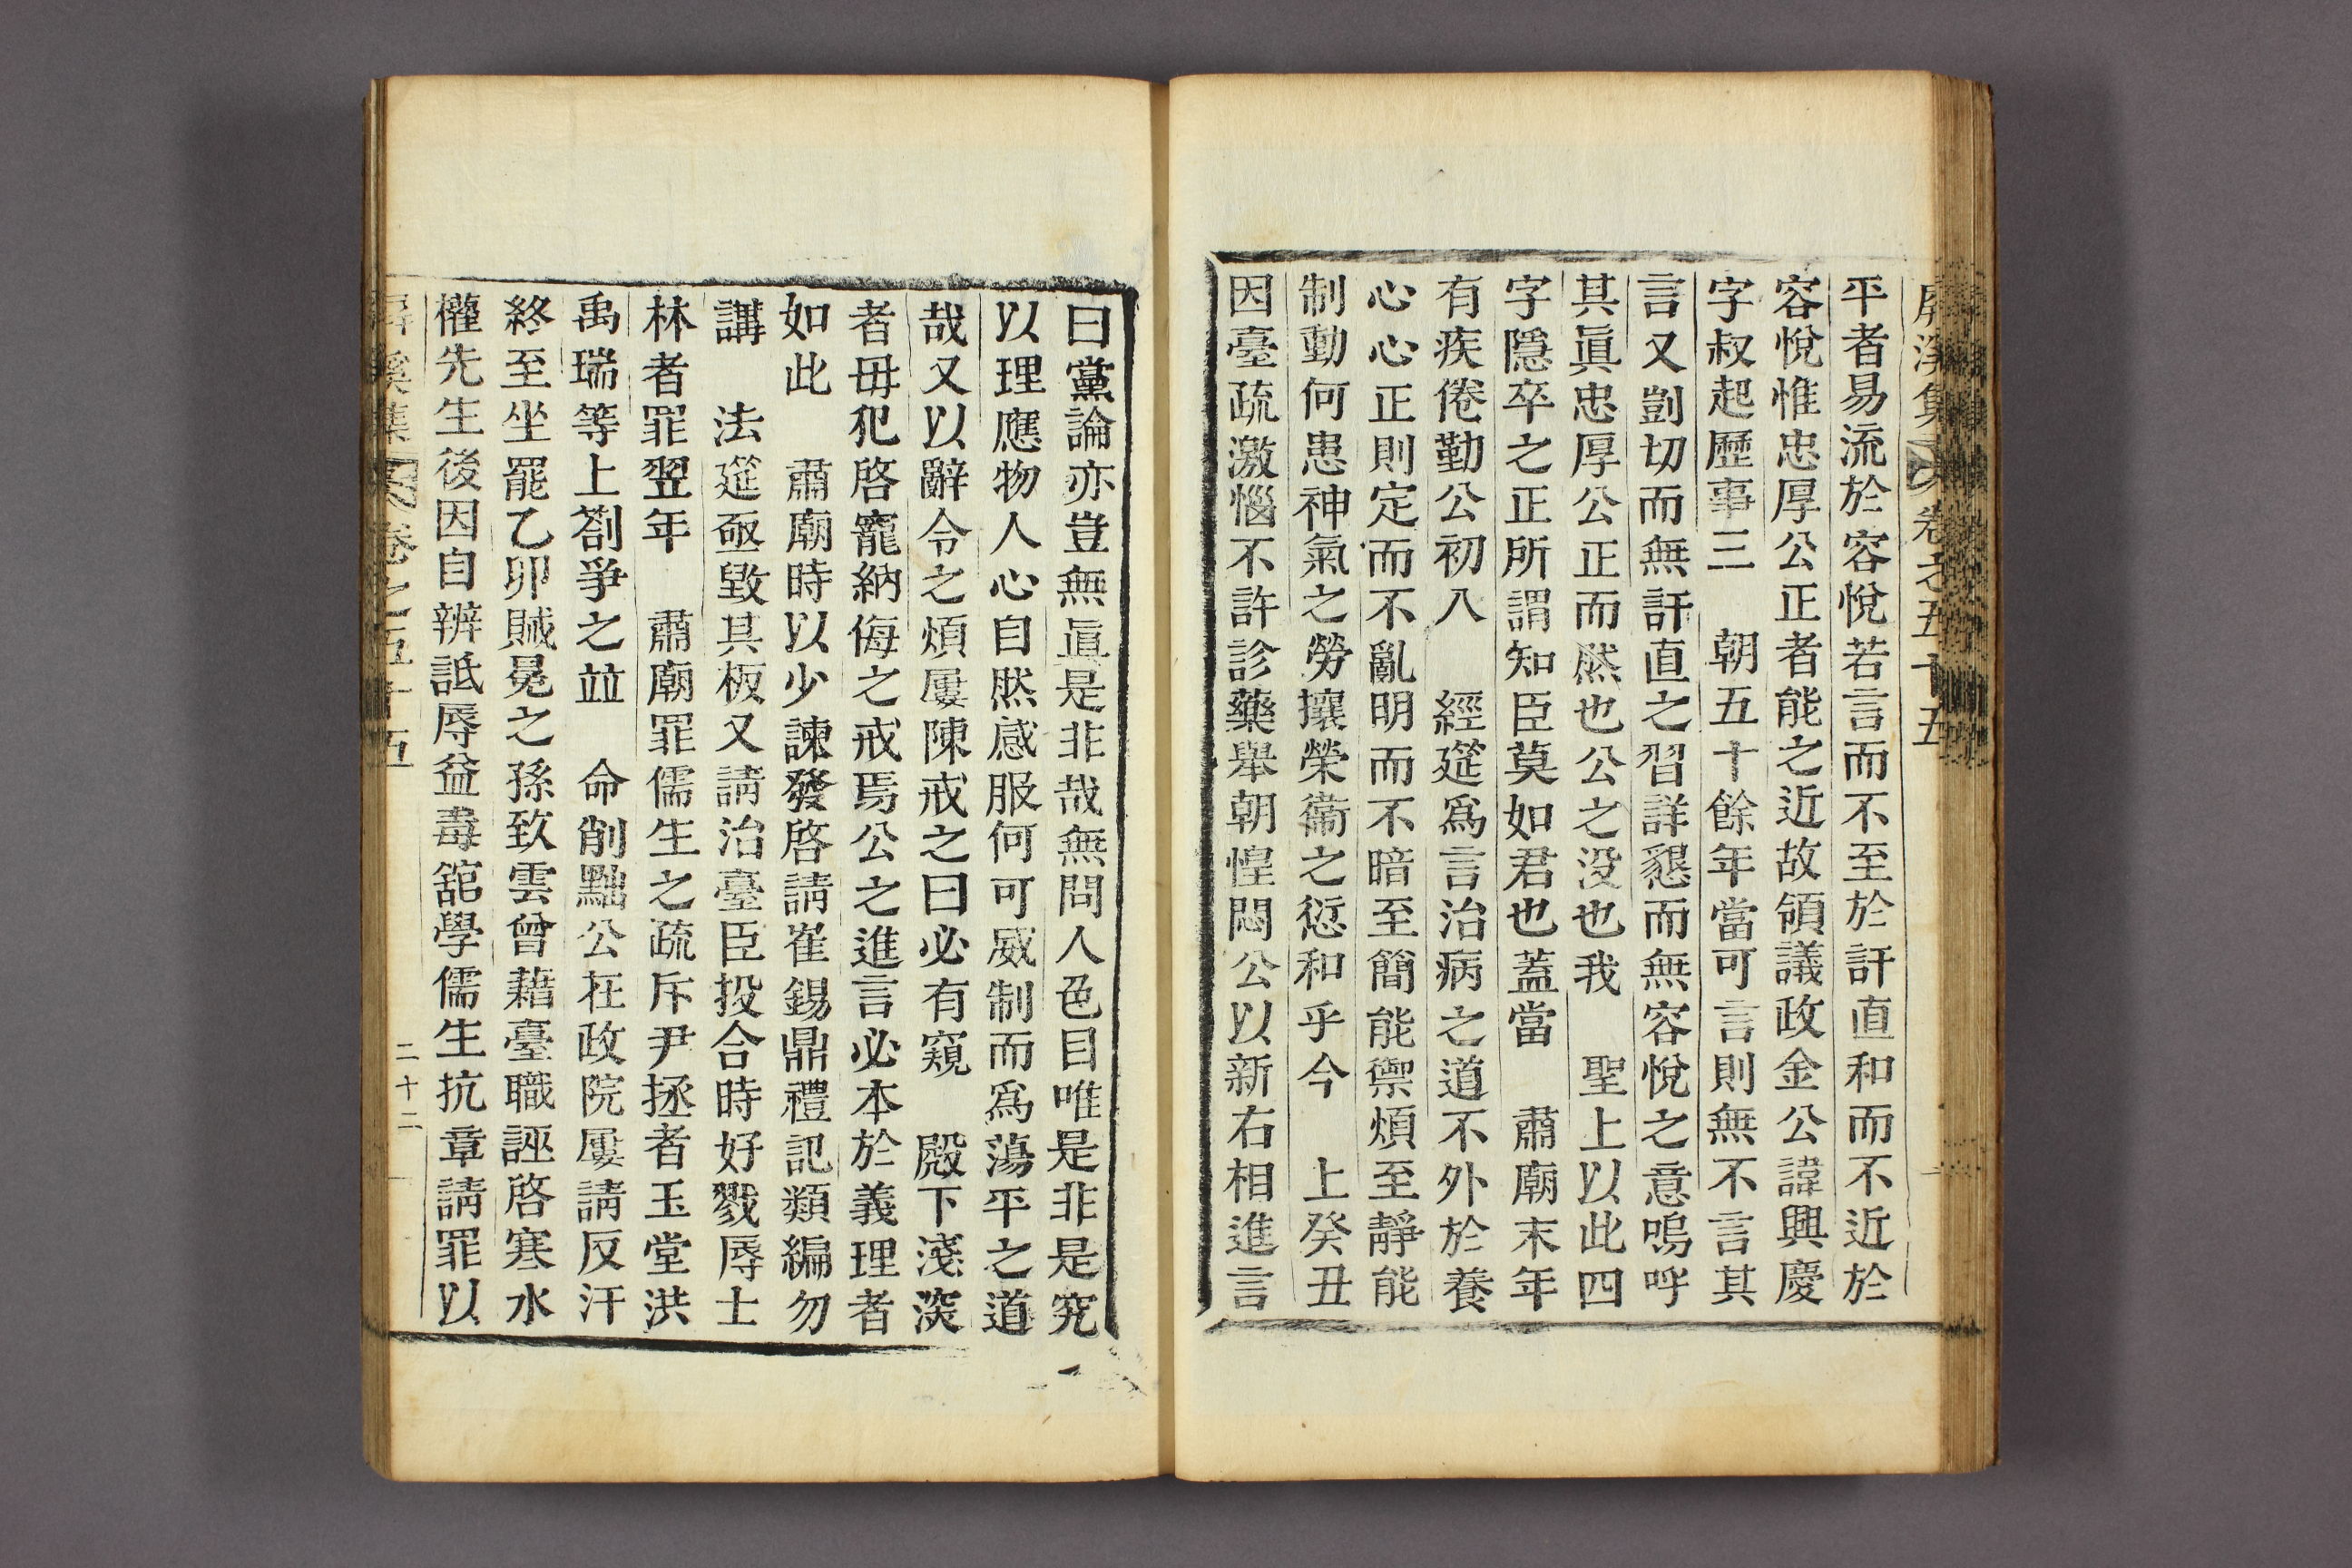 屏溪集 卷之五十五
平者易流於容悅若言而不至於訐直和而不近於
容悅惟忠厚公正者能之近故領議政金公諱興慶
字叔起歷事三　朝五十餘年當可言則無不言其
言又剴切而無訐直之習詳懇而無容悅之意嗚呼
其眞忠厚公正而然也公之没也我　聖上以此四
字隱卒之正所謂知臣莫如君也蓋當　肅廟末年
有疾倦勤公初入　經筵爲言治病之道不外於養
心心正則定而不亂明而不暗至簡能禦煩至靜能
制動何患神氣之勞攘榮衞之愆和乎今　上癸丑
因臺疏激惱不許診藥舉朝惶悶公以新右相進言
曰黨論亦豈無眞是非哉無問人色目唯是非是究
以理應物人心自然感服何可威制而爲蕩平之道
哉又以辭令之煩屢陳戒之曰必有窺　殿下淺深
者毋犯啓寵納侮之戒焉公之進言必本於義理者
如此　肅廟時以少諫發啓請崔錫鼎禮記類編勿
講　法筵亟毀其板又請治臺臣投合時好戮辱士
林者罪翌年　肅廟罪儒生之疏斥尹拯者玉堂洪
禹瑞等上劄爭之竝　命削黜公在政院屢請反汗
終至坐罷乙卯賊㝃之孫致雲曾藉臺職誣啓寒水
權先生後因自辨詆辱益毒舘學儒生抗章請罪以
屏溪集 卷之五十五　二十二